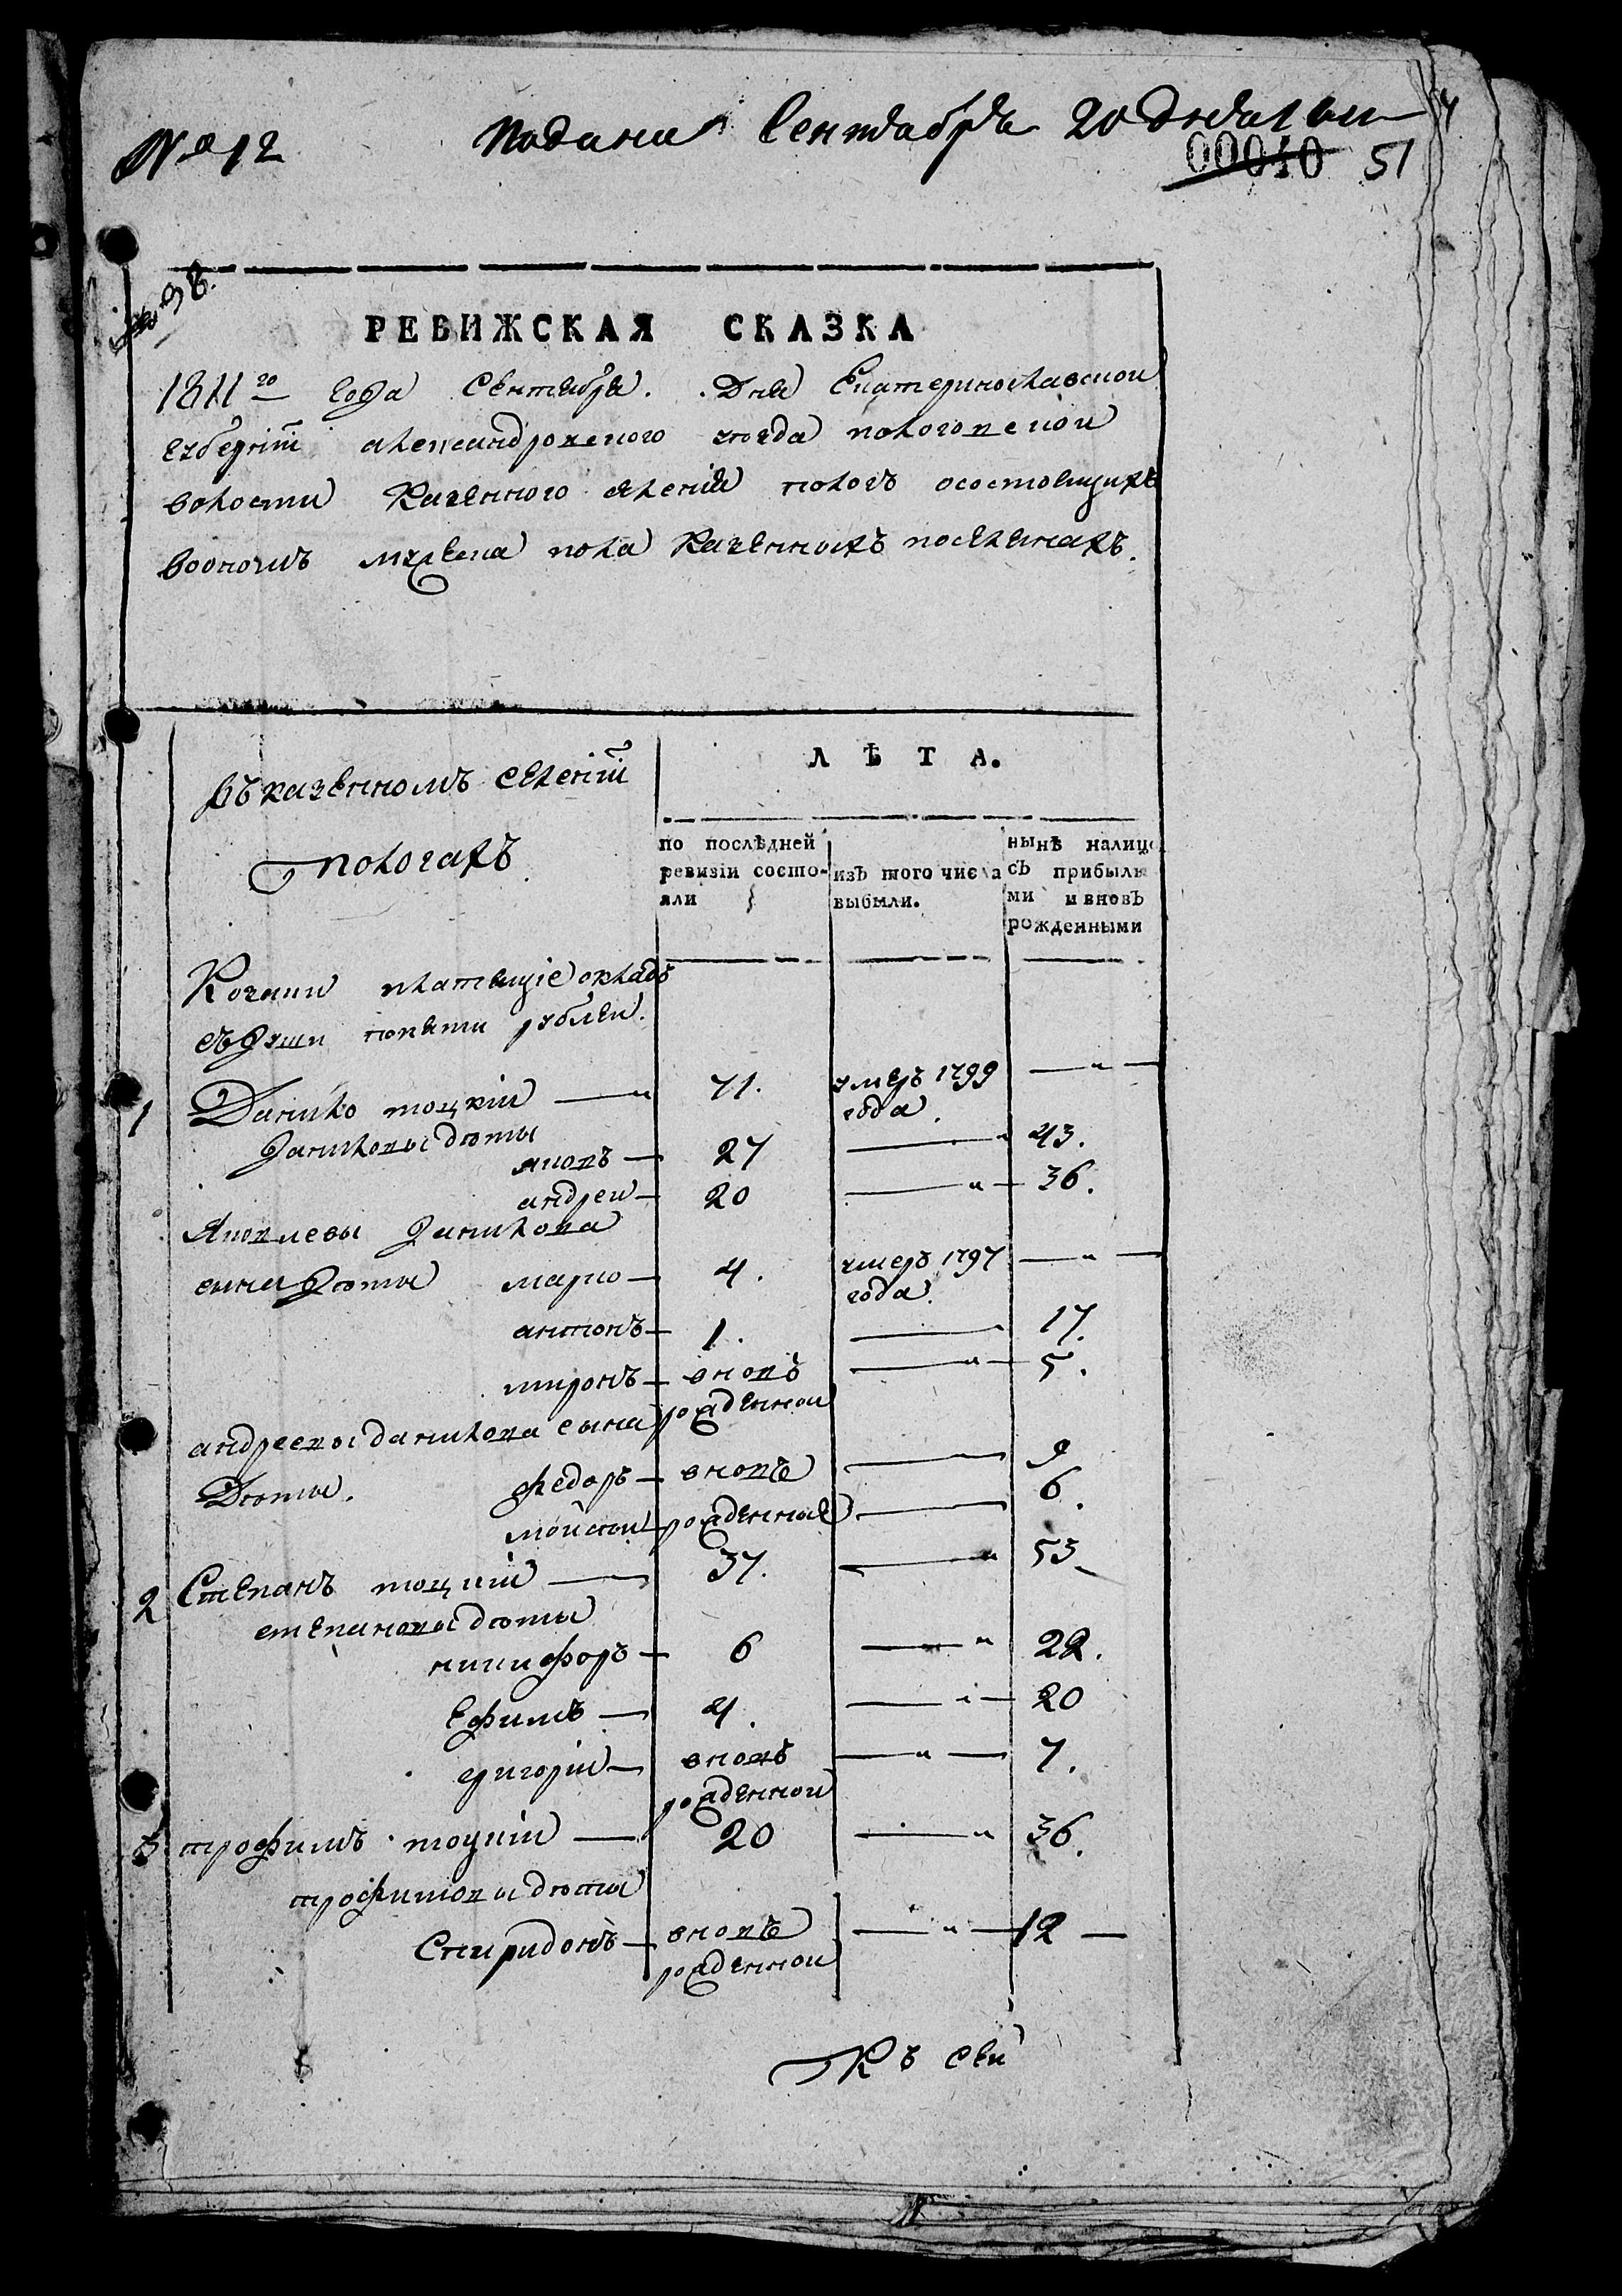 № 12
подана Сентября 20 дня 1811
00040 51
РЕВИЖСКАЯ СКАЗКА
1811го года Сентября. Дня Екатеринославской
губернiи александровского уезда пологовской
волости Казенного селенiя пологъ осостоящихъ
воономъ мужеска пола Казенныхъ поселянахъ.
въ казенномъ селенiи
пологахъ
ЛѢТА.
по послѣдней
ревизiи состо-
яли
изъ того числа
выбыли.
нынѣ налицо
съ прибылы
ми и вновь
рожденными
Козаки платящiе окладъ
съ души попяти рублеи.
1 Данилко тоцкiи 71. умеръ 1799
года.
Данилковы дѣти
яковъ 27 43.
андреи 20 36.
Яковлевы Данилкова
сына Дѣти марко 4. умеръ 1797
года.
антонъ 1. 17.
миронъ вновь 5.
рожденнои
андреевы данилкова сына
Дѣти. федоръ вновь 9
мойсеи рожденные 6.
2 Степанъ тоцкiи 37. 53
степановы дѣти
никифоръ 6 22.
Ефимъ 4. 20
григорiи вновь 7.
рожденнои
3 трофимъ тоцкiи 20 36.
трофимовы дѣти
Спиридонъ вновь 12
рожденнои
Къ сеи